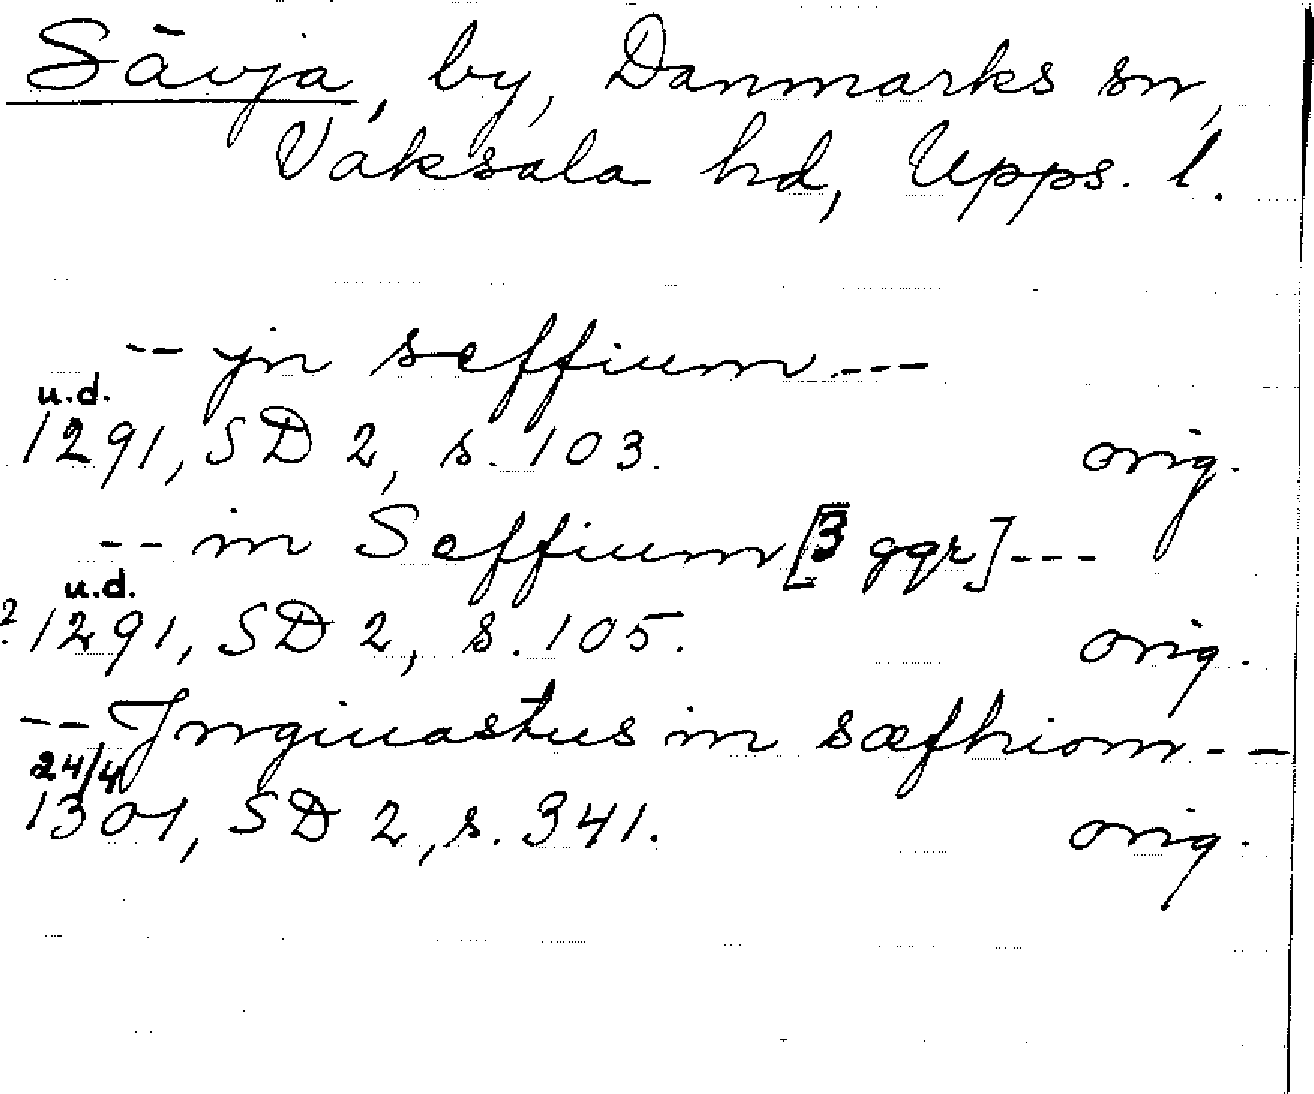 Sävja, by, Danmarks sn,
Vaksala hd, Upps. l.
-- jn seffium ---
u.d.
1291, SD 2, s. 103. orig.
-- in Seffium [3 ggr] ---
u.d.
? 1291, SD 2, s. 105. orig.
-- Jngiuastus in sæfhiom --
24/4
1301, SD 2, s. 341. orig.